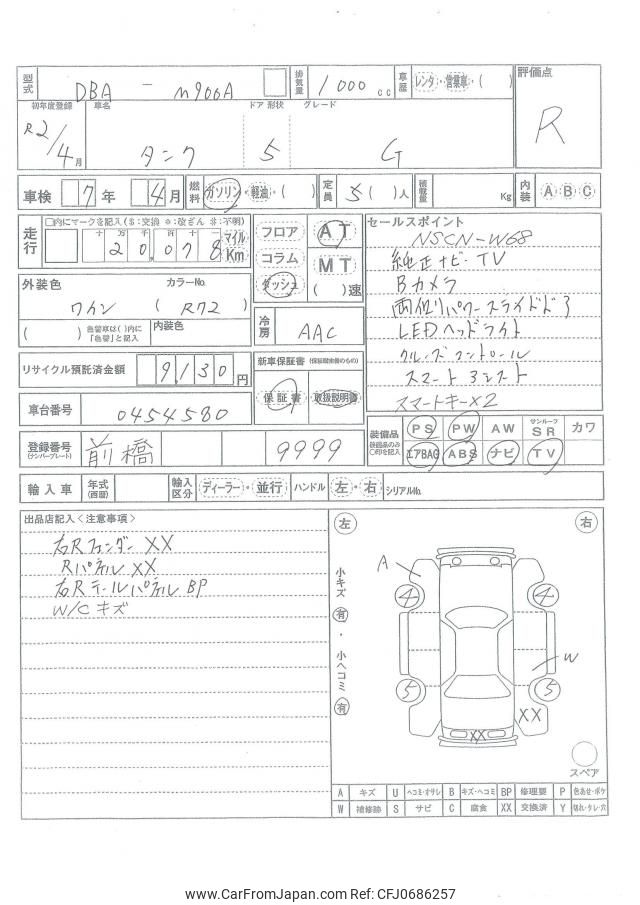 型式 DBA - M900A 排気量 1000 cc 車歴 レンタ・営業車・( ) 評価点
初年度登録 車名 ドア 形状 グレード R
R2/4月 タンク 5 G
車検 7年 4月 燃料 ガソリン・軽油・( ) 定員 5( )人 積載量 Kg 内装 A B C
走行 □内にマークを記入($:交換 *:改ざん #:不明)
十 万 千 百 十 一 マイル
20,078 Km
フロア AT
コラム MT
ダッシュ ( )速
セールスポイント
NSCN-W68
純正ナビ・TV
Bカメラ
両側パワースライドドア
LEDヘッドライト
クルーズコントロール
スマートアシスト
スマートキー×2
外装色 カラーNo.
ワイン ( R72 )
( ) 色替車は( )内に「色替」と記入 内装色
冷房 AAC
リサイクル預託済金額 9130円
新車保証書 (保証期間余のもの)
保証書 取扱説明書
車台番号 0454580
登録番号 (ナンバープレート) 前橋 9999
装備品 装備品のみ○印を記入
PS PW AW サンルーフ SR カワ
エアBAG ABS ナビ TV
輸入車 年式(西暦) 輸入区分 ディーラー・並行 ハンドル 左・右 シリアルNo.
出品店記入〈注意事項〉
右Rフェンダー XX
Rパネル XX
右Rテールパネル BP
W/C キズ
左 右
小キズ 有・小ヘコミ 有
A
4 4
W
5 5
XX
XX
スペア
A キズ U ヘコミ・オサレ B キズ・ヘコミ BP 修理要 P 色あせ・ボケ
W 補修跡 S サビ C 腐食 XX 交換済 Y 切れ・タレ・穴
www.CarFromJapan.com Ref:CFJ0686257